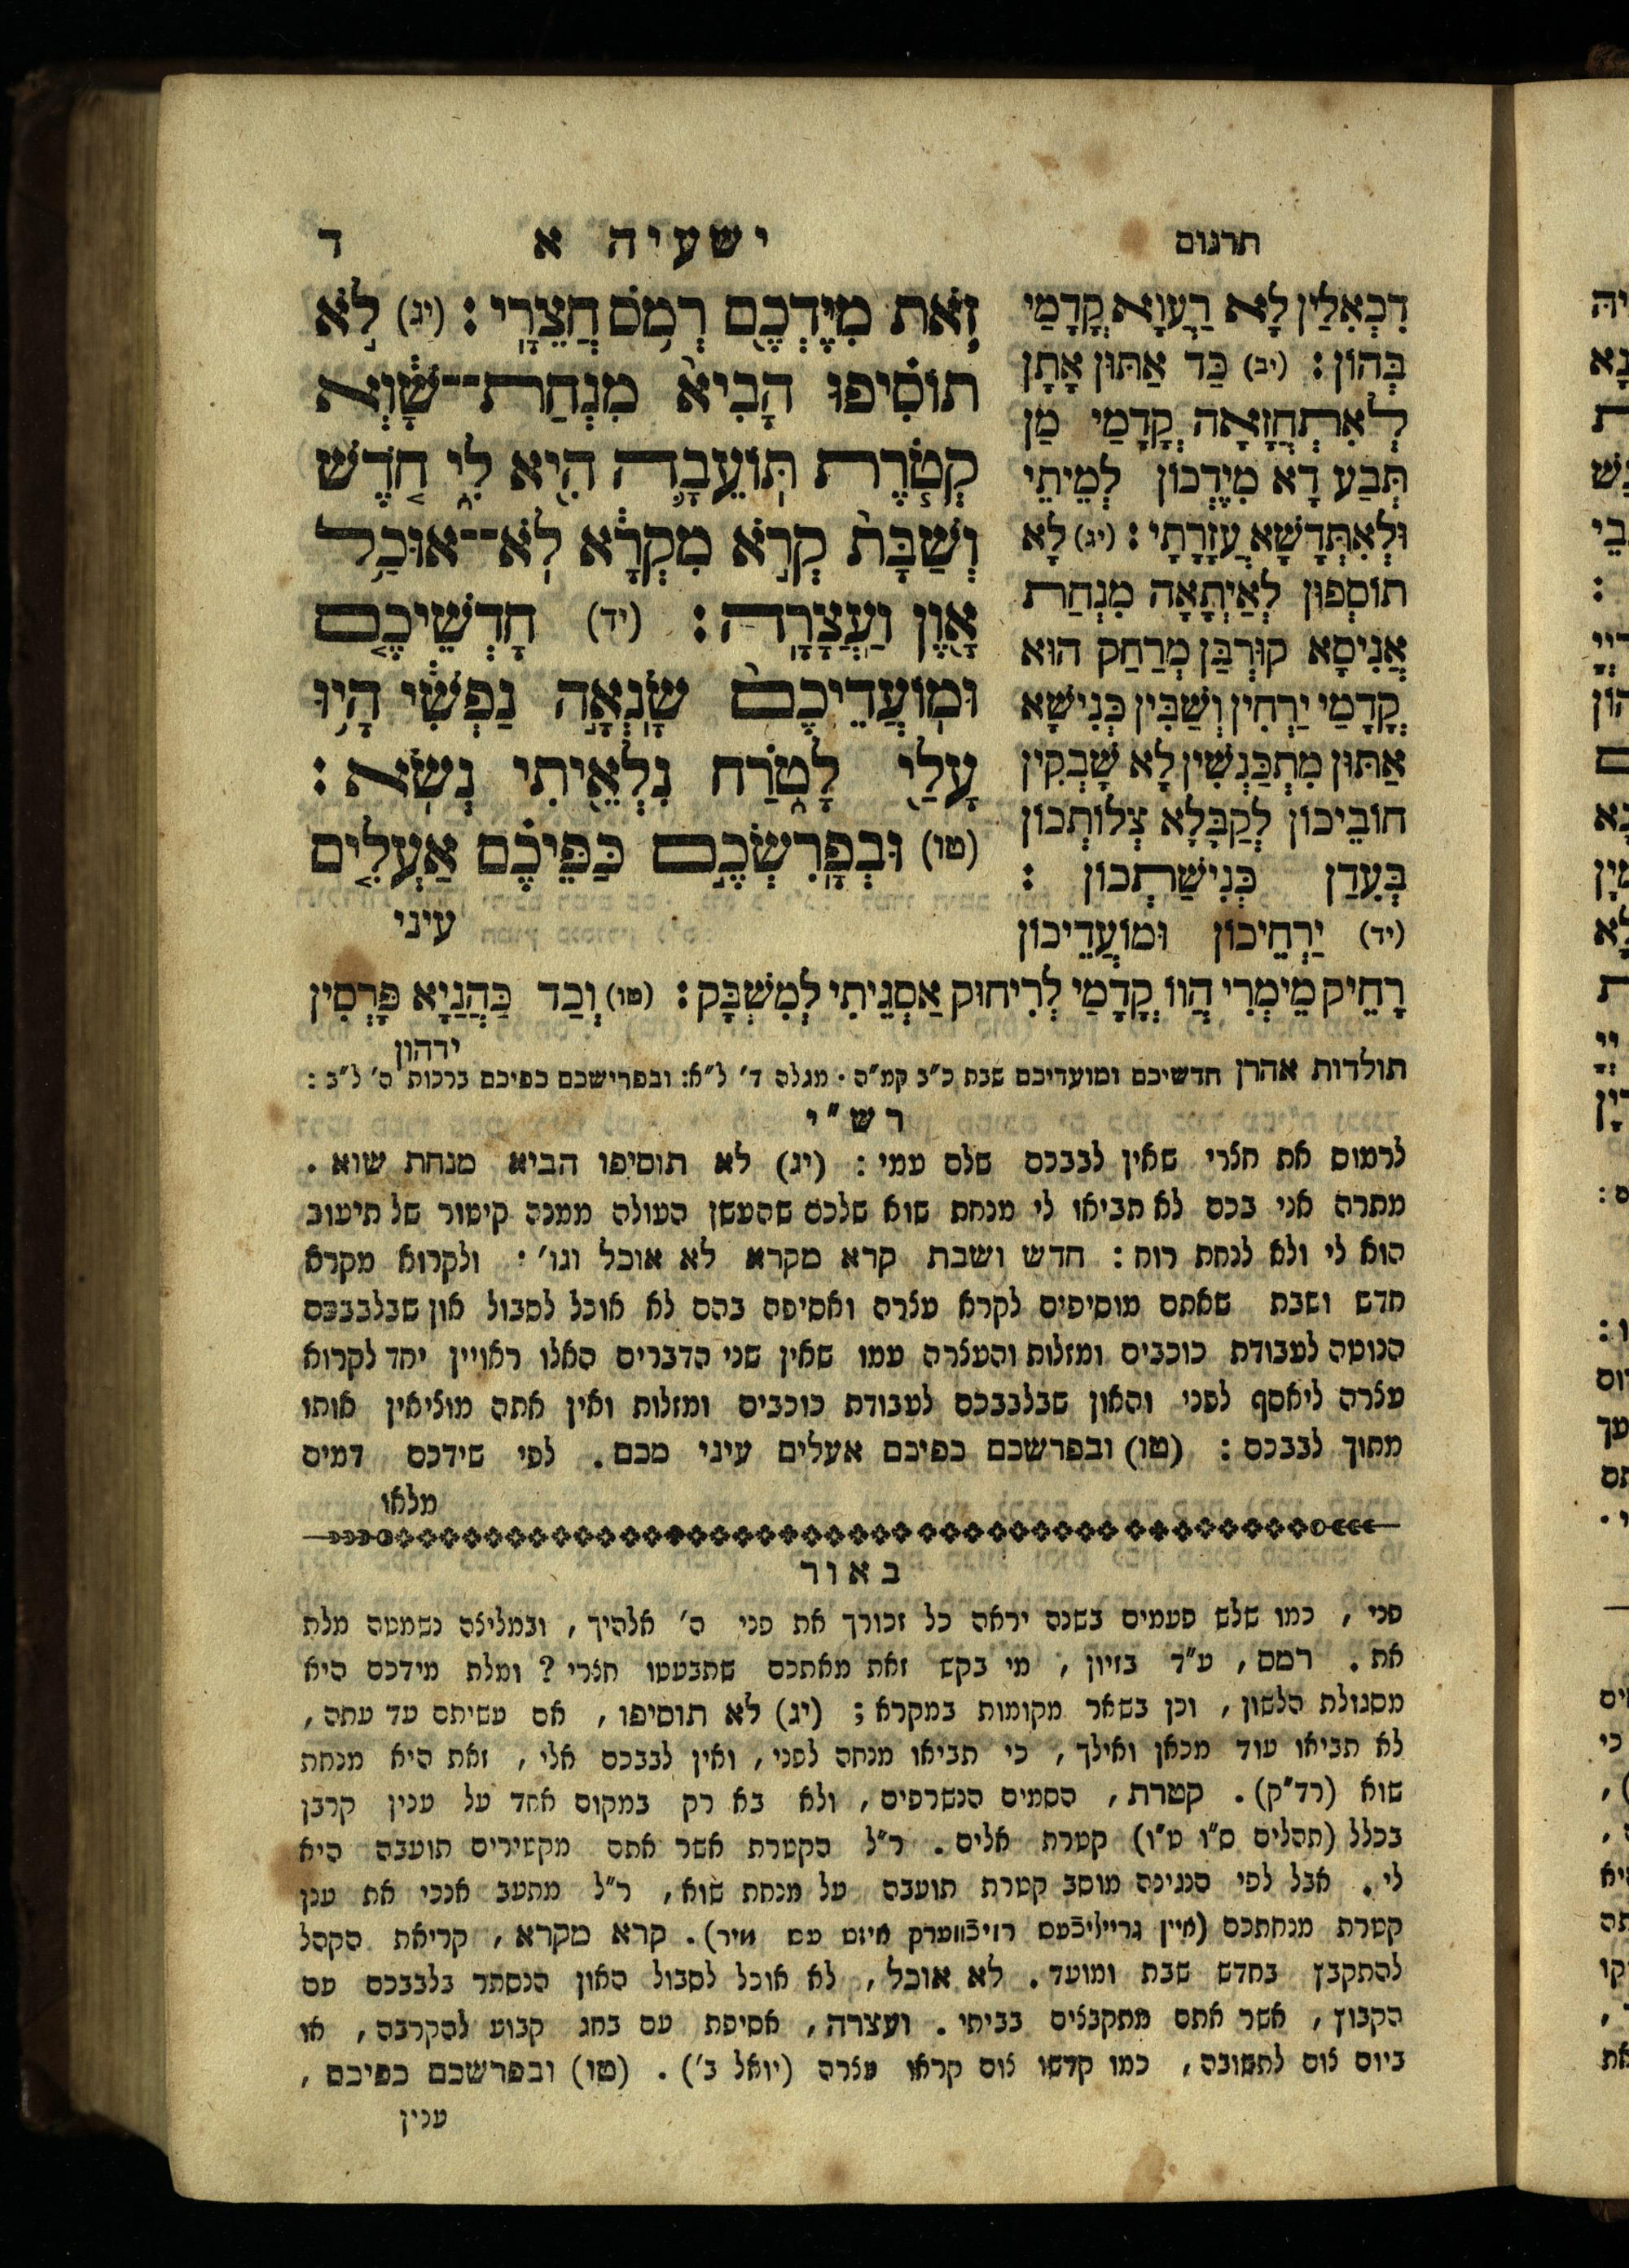 תרגום
ישעיה א
ד
דִכְאִלֵין לָא רַעֲוָא קֳדָמַי
בְּהוֹן : (יב) כַּד אַתּוּן אָתָן
לְאִתְחֲזָאָה קֳדָמַי מַן
תְּבַע דָא מִיֶדְכוֹן לְמֵיתֵי
וּלְאִתְּדָשָׁא עֲזָרָתָי : (יג) לָא
תוֹסְפוּן לְאַיְתָאָה מִנְחַת
אֲנִיסָא קוּרְבַּן מְרַחַק הוּא
קֳדָמַי יַרְחִין וְשַׁבִּין כְּנִישָׁא
אַתּוּן מִתְכַּנְשִׁין לָא שָׁבְקִין
חוֹבֵיכוֹן לְקַבָּלָא צְלוֹתְכוֹן
בְּעִדַן כְּנִישַׁתְכוֹן :
(יד) יַרְחֵיכוֹן וּמוֹעֲדֵיכוֹן
זֹ֥את מִיֶּדְכֶ֖ם רְמֹ֥ס חֲצֵרָֽי : (יג) לֹ֣א
תוֹסִ֗יפוּ הָבִיא֙ מִנְחַת־־שָׁ֔וְא
קְטֹ֧רֶת תּֽוֹעֵבָ֛ה הִ֖יא לִ֑י חֹ֤דֶשׁ
וְשַׁבָּת֙ קְרֹ֣א מִקְרָ֔א לֹֽא־־אוּכַ֥ל
אָ֖וֶן וַֽעֲצָרָֽה : (יד) חָדְשֵׁיכֶ֤ם
וּמֽוֹעֲדֵיכֶם֙ שָֽׂנְאָ֣ה נַפְשִׁ֔י הָי֥וּ
עָלַ֖י לָטֹ֑רַח נִלְאֵ֖יתִי נְשֹֽׂא :
(טו) וּבְפָֽרִשְׂכֶ֣ם כַּפֵּיכֶ֗ם אַעְלִ֤ים
עיני
רָחֵיק מֵימְרִי הֲווֹ קֳדָמַי לְרִיחוּק אַסְגֵיתִי לְמִשְׁבָּק : (טו) וְכַד כַּהֲנַיָא פָּרְסִין
ידהון
תולדות אהרן חדשיכם ומועדיכם שבת כ״ב קמ״ה . מגלה ד׳ ל״א: ובפרישכם כפיכם ברכות ה׳ ל״ב :
רש״י
לרמוס את חצרי שאין לבבכם שלם עמי : (יג) לא תוסיפו הביא מנחת שוא .
מתרה אני בכם לא תביאו לי מנחת שוא שלכם שהעשן העולה ממנה קיטור של תיעוב
הוא לי ולא לנחת רוח : חדש ושבת קרא מקרא לא אוכל וגו׳ : ולקרוא מקרא
חדש ושבת שאתם מוסיפים לקרא עצרה ואסיפה בהם לא אוכל לסבול און שבלבבכם
הנוטה לעבודת כוכבים ומזלות והעצרה עמו שאין שני הדברים האלו ראויין יחד לקרוא
עצרה ליאסף לפני והאון שבלבבכם לעבודת כוכבים ומזלות ואין אתה מוציאין אותו
מתוך לבבכם : (טו) ובפרשכם כפיכם אעלים עיני מכם . לפי שידכם דמים
מלאו
באור
פני , כמו שלש פעמים בשנה יראה כל זכורך את פני ה׳ אלהיך , ובמליצה נשמטה מלת
את . רמס , ע״ד בזיון , מי בקש זאת מאתכם שתבעטו חצרי ? ומלת מידכם היא
מסגולת הלשון , וכן בשאר מקומות במקרא ; (יג) לא תוסיפו , אם עשיתם עד עתה ,
לא תביאו עוד מכאן ואילך , כי תביאו מנחה לפני , ואין לבבכם אלי , זאת היא מנחת
שוא (רד״ק) . קטרת , הסמים הנשרפים , ולא בא רק במקום אחד על ענין קרבן
בכלל (תהלים ס״ו ט״ו) קטרת אלים . ר״ל הקטרת אשר אתם מקטירים תועבה היא
לי . אבל לפי הנגינה מוסב קטרת תועבה על מנחת שוא , ר״ל מתעב אנכי את ענן
קטרת מנחתכם (איין גרייליכֿעס רויכֿווערק איזט עס מיר) . קרא מקרא , קריאת הקהל
להתקבץ בחדש שבת ומועד . לא אוכל , לא אוכל לסבול האון הנסתר בלבבכם עם
הקבוץ , אשר אתם מתקבצים בביתי . ועצרה , אסיפת עם בחג קבוע להקרבה , או
ביום צום לתשובה , כמו קדשו צום קראו עצרה (יואל ב׳) . (טו) ובפרשכם כפיכם ,
ענין